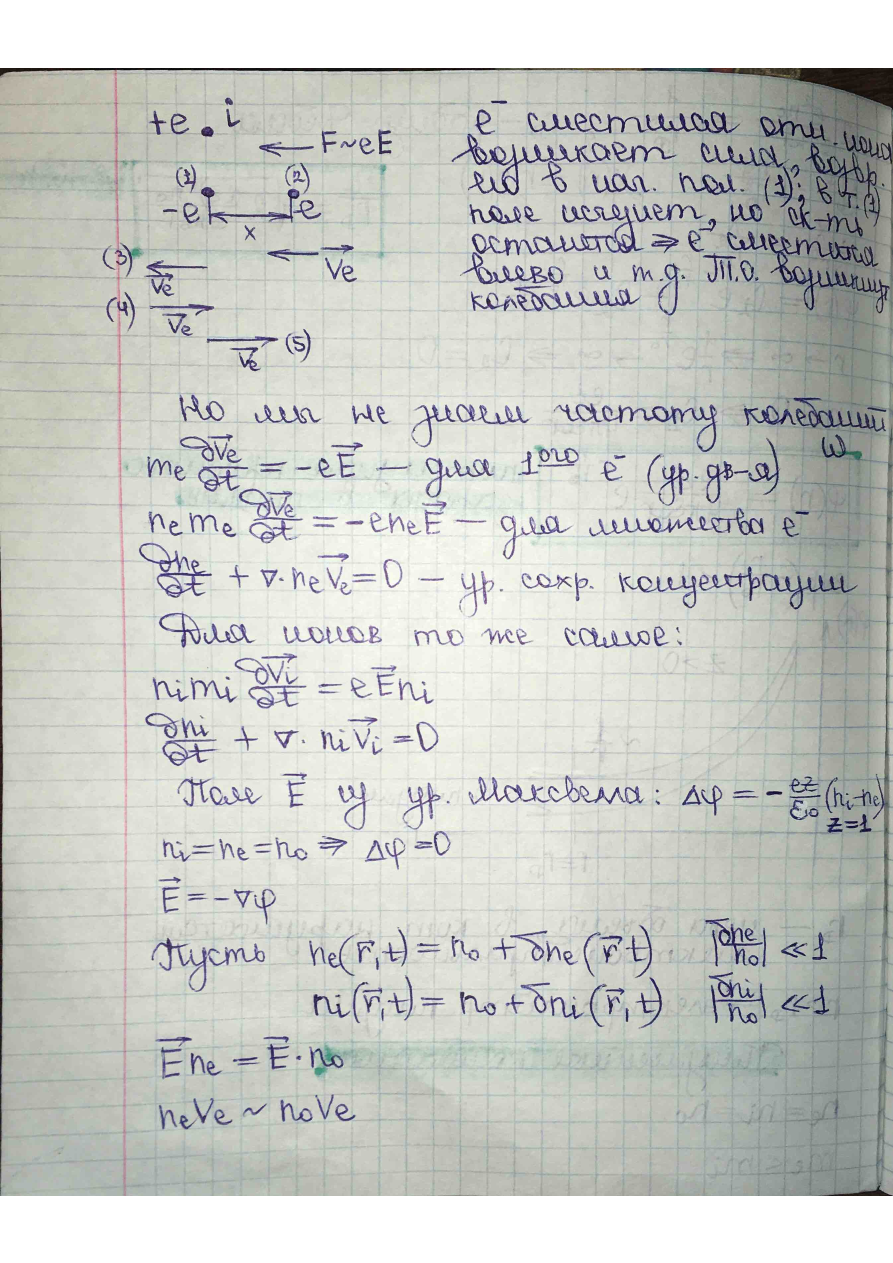 +e i
F~eE
(1) (2)
-e e
x
(3) V⃗e
V⃗e
(4) V⃗e
V⃗e (5)
e⁻ сместился отн. иона
возникает сила, возвр.
его в нач. пол. (1); в т.(1)
поле исчезнет, но ск-ть
останется ⇒ e⁻ сместится
влево и т.д. Т.о. возникнут
колебания
Но мы не знаем частоту колебаний
ω
mₑ ∂V⃗e/∂t = -eE⃗ — для 1ого e⁻ (ур. дв-я)
nₑmₑ ∂V⃗e/∂t = -enₑE⃗ — для множества e⁻
∂nₑ/∂t + ∇·nₑV⃗e = 0 — ур. сохр. концентрации
Для ионов то же самое:
nᵢmᵢ ∂V⃗i/∂t = eE⃗nᵢ
∂nᵢ/∂t + ∇·nᵢV⃗i = 0
Поле E⃗ из ур. Максвелла: Δφ = -ez/ε₀ (nᵢ-nₑ)
z=1
nᵢ=nₑ=n₀ ⇒ Δφ=0
E⃗ = -∇φ
Пусть nₑ(r⃗,t) = n₀ + δnₑ(r⃗ t) |δnₑ/n₀| ≪ 1
nᵢ(r⃗,t) = n₀ + δnᵢ(r⃗,t) |δnᵢ/n₀| ≪ 1
E⃗nₑ = E⃗·n₀
nₑVe ~ n₀Ve